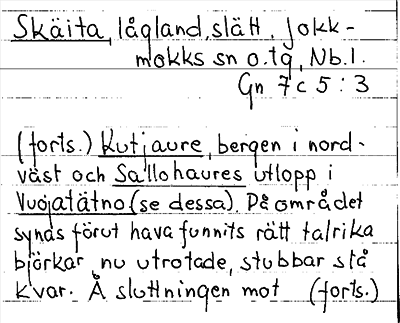 Skäita, lågland, slätt, Jokk-
mokks sn o. tg, Nb. l.
Gn 7c 5 : 3
(forts.) Kutjaure, bergen i nord-
väst och Sallohaures utlopp i
Vuojatätno (se dessa). På området
synas förut hava funnits rätt talrika
björkar, nu utrotade, stubbar stå
kvar. Å sluttningen mot (forts.)